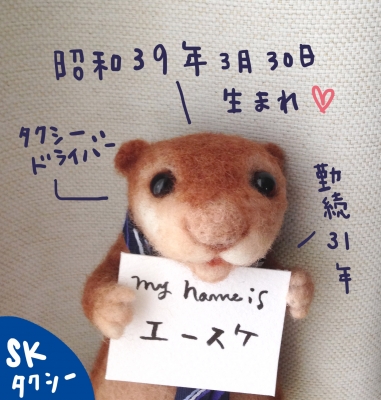 昭和39年3月30日
生まれ♡
タクシー
ドライバー
勤続31年
my name is
エースケ
SK
タクシー